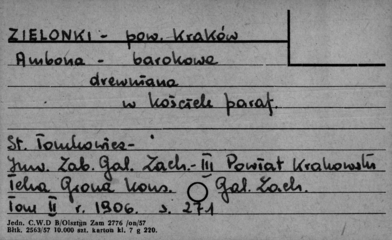 ZIELONKI - pow. Kraków
Ambona - barokowa
drewniana
w kościele paraf.
St. Tomkowicz -
Inw. Zab. Gal. Zach. - III Powiat Krakowski
Teka Grona Kons. Gal. Zach.
Tom II r. 1906. s. 271
Jedn. C.W.D B/Olsztyn Zam 2776 /on/57
Bltk. 2563/57 10.000 szt. karton kl. 7 g 220.